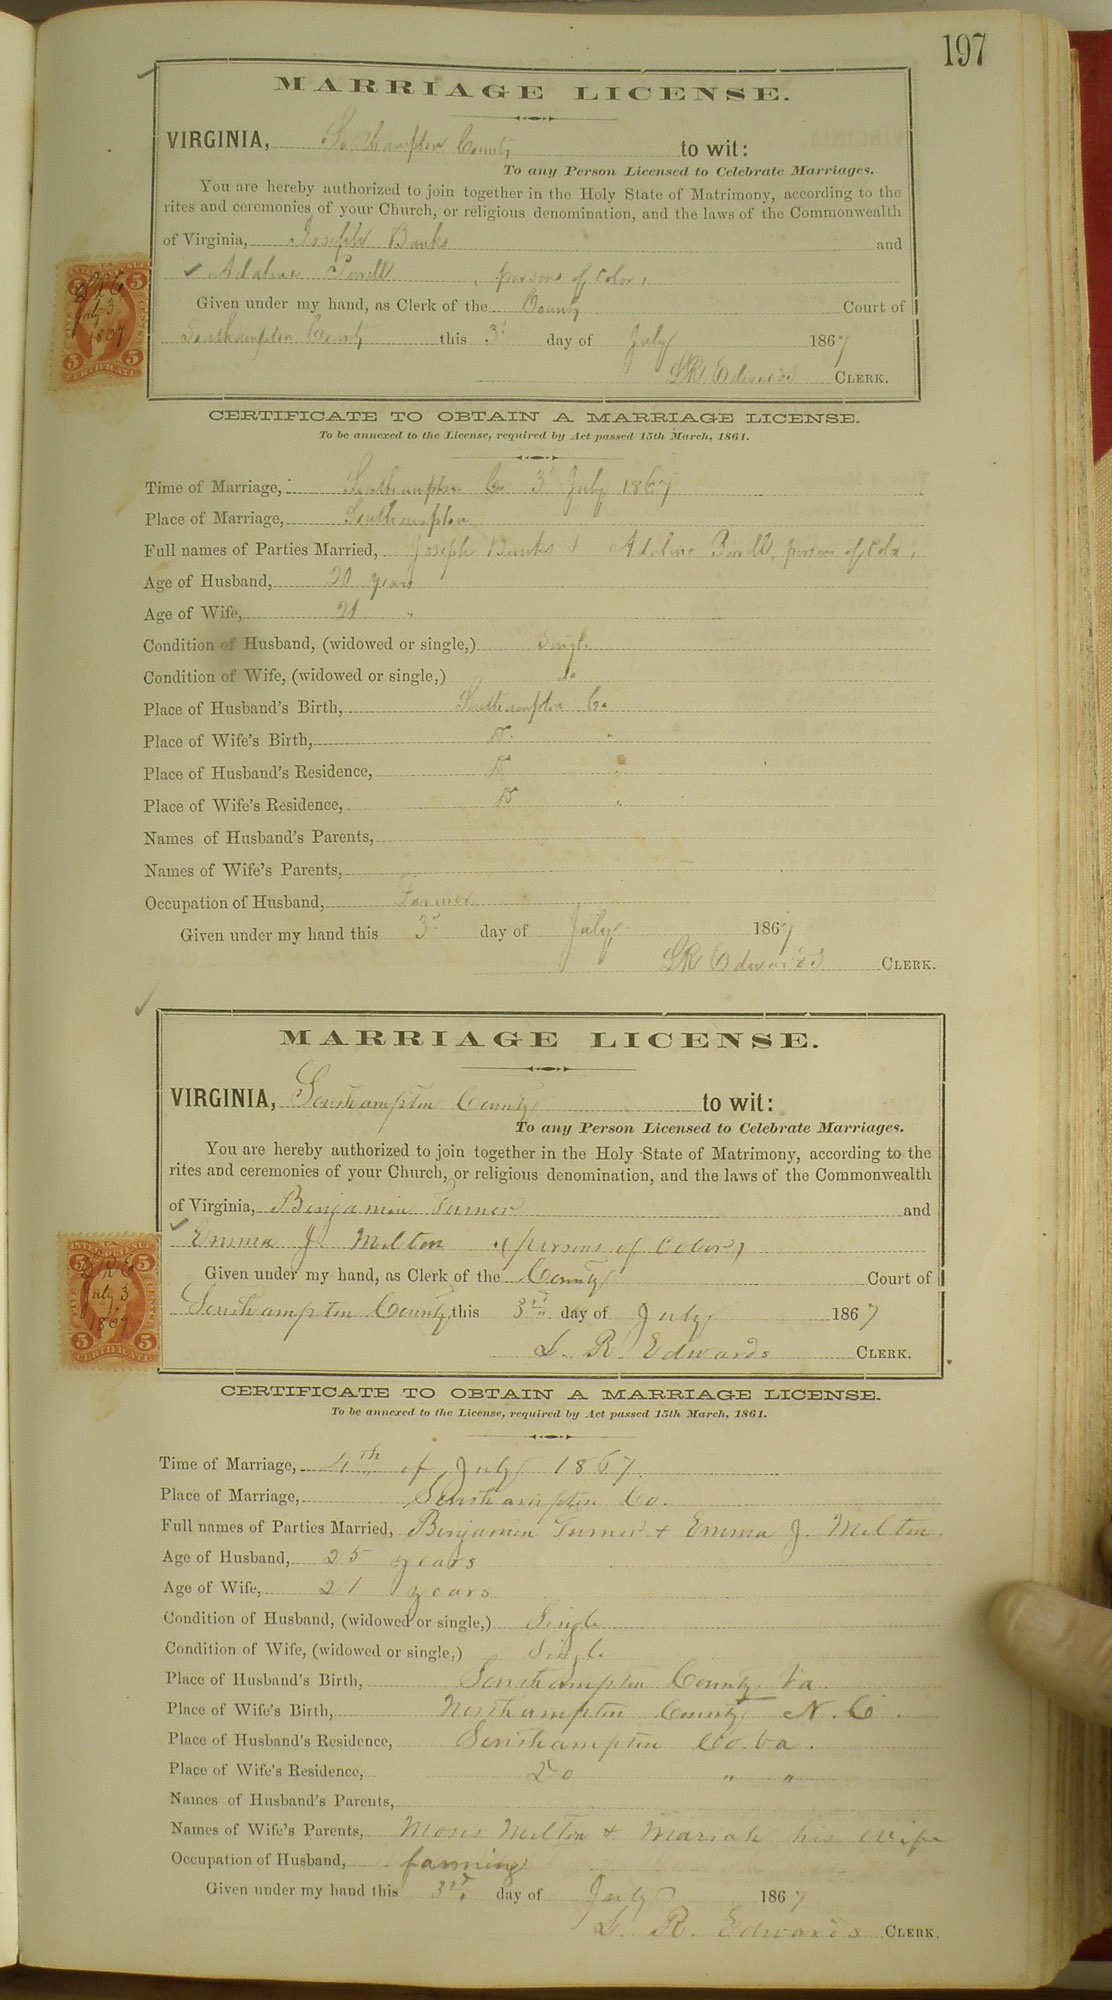 197
MARRIAGE LICENSE.
VIRGINIA, Southampton County to wit:
To any Person Licensed to Celebrate Marriages.
You are hereby authorized to join together in the Holy State of Matrimony, according to the
rites and ceremonies of your Church, or religious denomination, and the laws of the Commonwealth
of Virginia, Joseph Banks and
persons of Color,
Given under my hand, as Clerk of the County Court of
Southampton County this 3d day of July 1867
LR Edwards CLERK.
INTER. REVENUE
5 5
LRE
July 3
1867
FIVE CENTS
5 5
CERTIFICATE
CERTIFICATE TO OBTAIN A MARRIAGE LICENSE.
To be annexed to the License, required by Act passed 15th March, 1861.
Time of Marriage, Southampton Co 3d July 1867
Place of Marriage, Southampton
Full names of Parties Married, Joseph Banks + Adeline persons of Color,
Age of Husband, 20 years
Age of Wife, 21 "
Condition of Husband, (widowed or single,) Single
Condition of Wife, (widowed or single,) do
Place of Husband's Birth, Southampton Co
Place of Wife's Birth, Do "
Place of Husband's Residence, Do "
Place of Wife's Residence, Do "
Names of Husband's Parents,
Names of Wife's Parents,
Occupation of Husband, Farmer
Given under my hand this 3d day of July 1867
LR Edwards CLERK.
MARRIAGE LICENSE.
VIRGINIA, Southampton County to wit:
To any Person Licensed to Celebrate Marriages.
You are hereby authorized to join together in the Holy State of Matrimony, according to the
rites and ceremonies of your Church, or religious denomination, and the laws of the Commonwealth
of Virginia, Benjamin Turner and
Emma J. Melton (persons of Color)
Given under my hand, as Clerk of the County Court of
Southampton County, this 3rd day of July 1867
L. R. Edwards CLERK.
INTER. REVENUE
5 5
LRE
July 3
1867
FIVE CENTS
5 5
CERTIFICATE
CERTIFICATE TO OBTAIN A MARRIAGE LICENSE.
To be annexed to the License, required by Act passed 15th March, 1861.
Time of Marriage, 4th of July 1867.
Place of Marriage, Southampton Co.
Full names of Parties Married, Benjamin Turner + Emma J. Melton.
Age of Husband, 25 years
Age of Wife, 21 years
Condition of Husband, (widowed or single,) Single
Condition of Wife, (widowed or single,) Single
Place of Husband's Birth, Southampton County Va.
Place of Wife's Birth, Northampton County N.C.
Place of Husband's Residence, Southampton Co. Va.
Place of Wife's Residence, Do " "
Names of Husband's Parents,
Names of Wife's Parents, Moses Melton + Mariah his wife
Occupation of Husband, farming
Given under my hand this 3rd day of July 1867
L. R. Edwards CLERK.